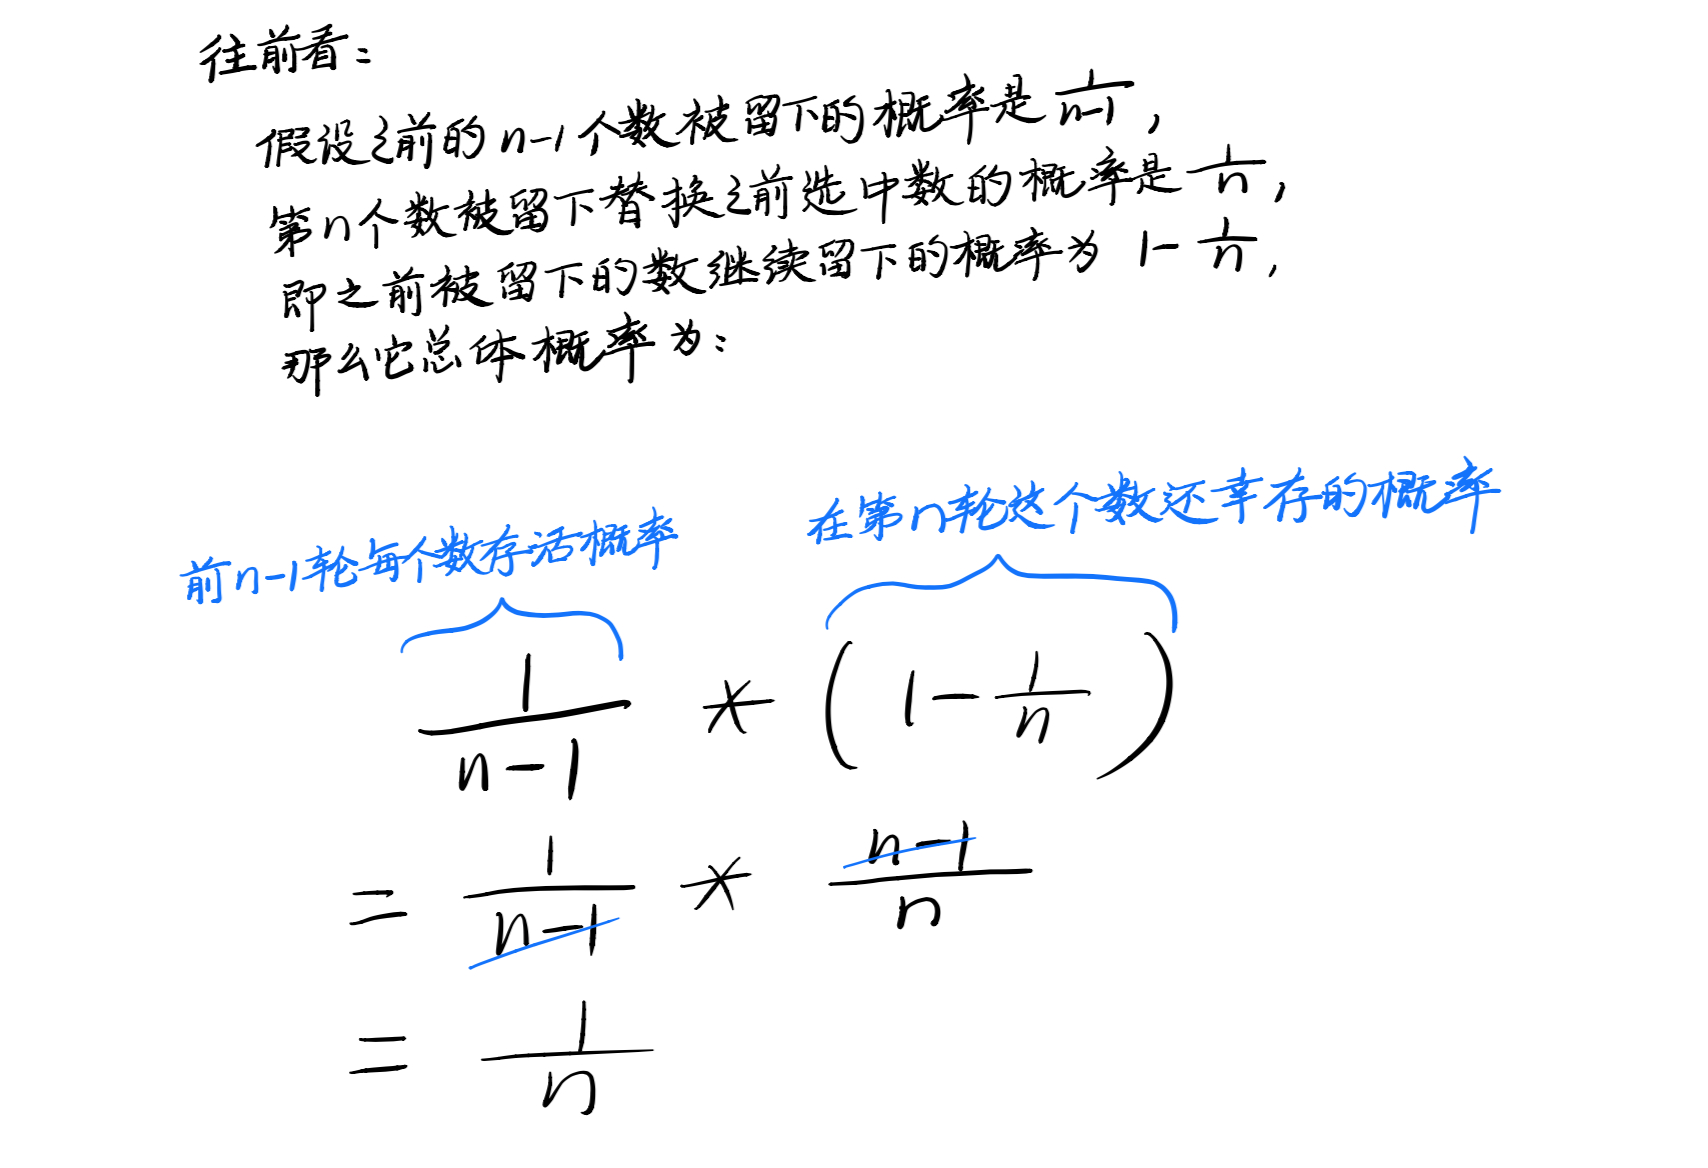 往前看：
假设之前的n-1个数被留下的概率是1/(n-1)，
第n个数被留下替换之前选中数的概率是1/n，
即之前被留下的数继续留下的概率为 1-1/n，
那么它总体概率为：
前n-1轮每个数存活概率
在第n轮这个数还幸存的概率
1/(n-1) * (1-1/n)
= 1/(n-1) * (n-1)/n
= 1/n